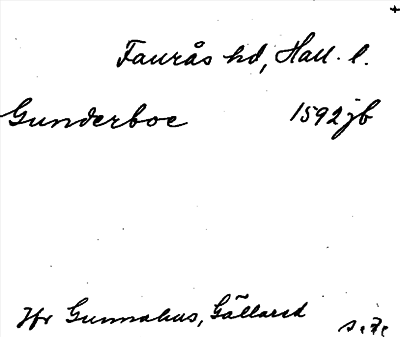 Faurås hd, Hall. l.
Gunderboe 1592 jb
Jfr Gunnahus, Gällared